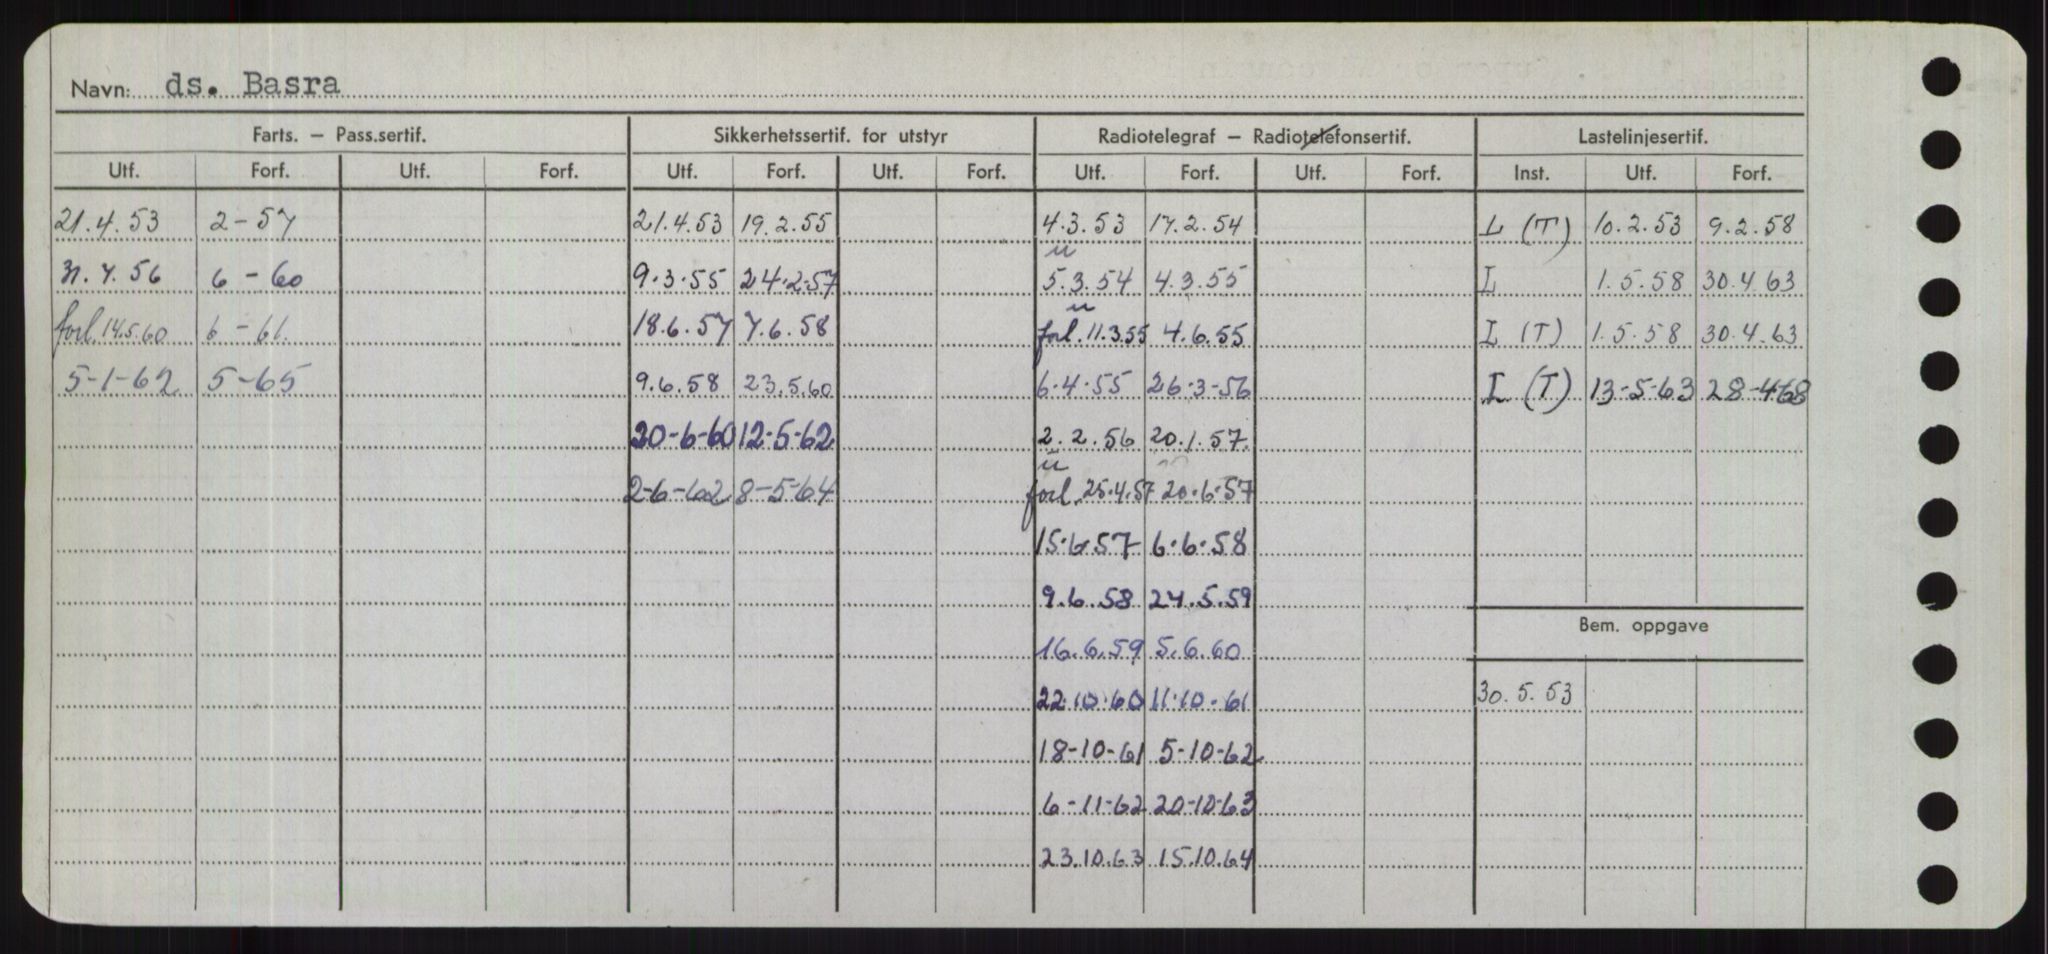 Navn: ds. Basra
Farts. – Pass.sertif. Sikkerhetssertif. for utstyr Radiotelegraf – Radiotelefonsertif. Lastelinjesertif.
Utf. Forf. Utf. Forf. Utf. Forf. Utf. Forf. Utf. Forf. Utf. Forf. Inst. Utf. Forf.
21.4.53 2-57 21.4.53 19.2.55 4.3.53 17.2.54 L (T) 10.2.53 9.2.58
7.56 6-60 9.3.55 24.2.57 u 5.3.54 4.3.55 L 1.5.58 30.4.63
forl. 14.5.60 6-61. 18.6.57 7.6.58 u forl. 11.3.55 4.6.55 L (T) 1.5.58 30.4.63
5-1-62 5-65 9.6.58 23.5.60 6.4.55 26-3-56 L (T) 13-5-63 28-4-68
20-6-60 12-5-62 2.2.56 20.1.57.
2-6-62 8-5-64 u forl. 25.4.57 20.6.57
15.6.57 6.6.58
9.6.58 24.5.59
16.6.59 5.6.60
Bem. oppgave
22.10.60 11.10.61 30.5.53
18-10-61 5-10-62
6-11-62 20-10-63
23.10.63 15.10.64